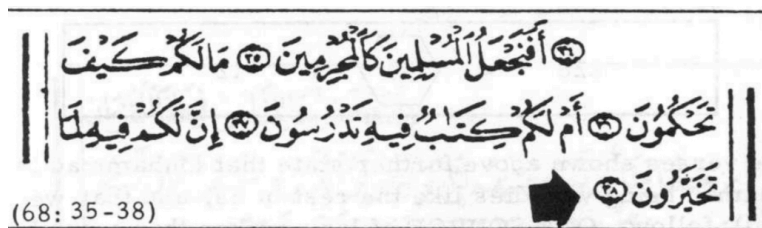 ﴿٣٤﴾ أَفَنَجْعَلُ ٱلْمُسْلِمِينَ كَٱلْمُجْرِمِينَ ﴿٣٥﴾ مَا لَكُمْ كَيْفَ
تَحْكُمُونَ ﴿٣٦﴾ أَمْ لَكُمْ كِتَٰبٌ فِيهِ تَدْرُسُونَ ﴿٣٧﴾ إِنَّ لَكُمْ فِيهِ لَمَا
تَخَيَّرُونَ ﴿٣٨﴾
(68: 35-38)